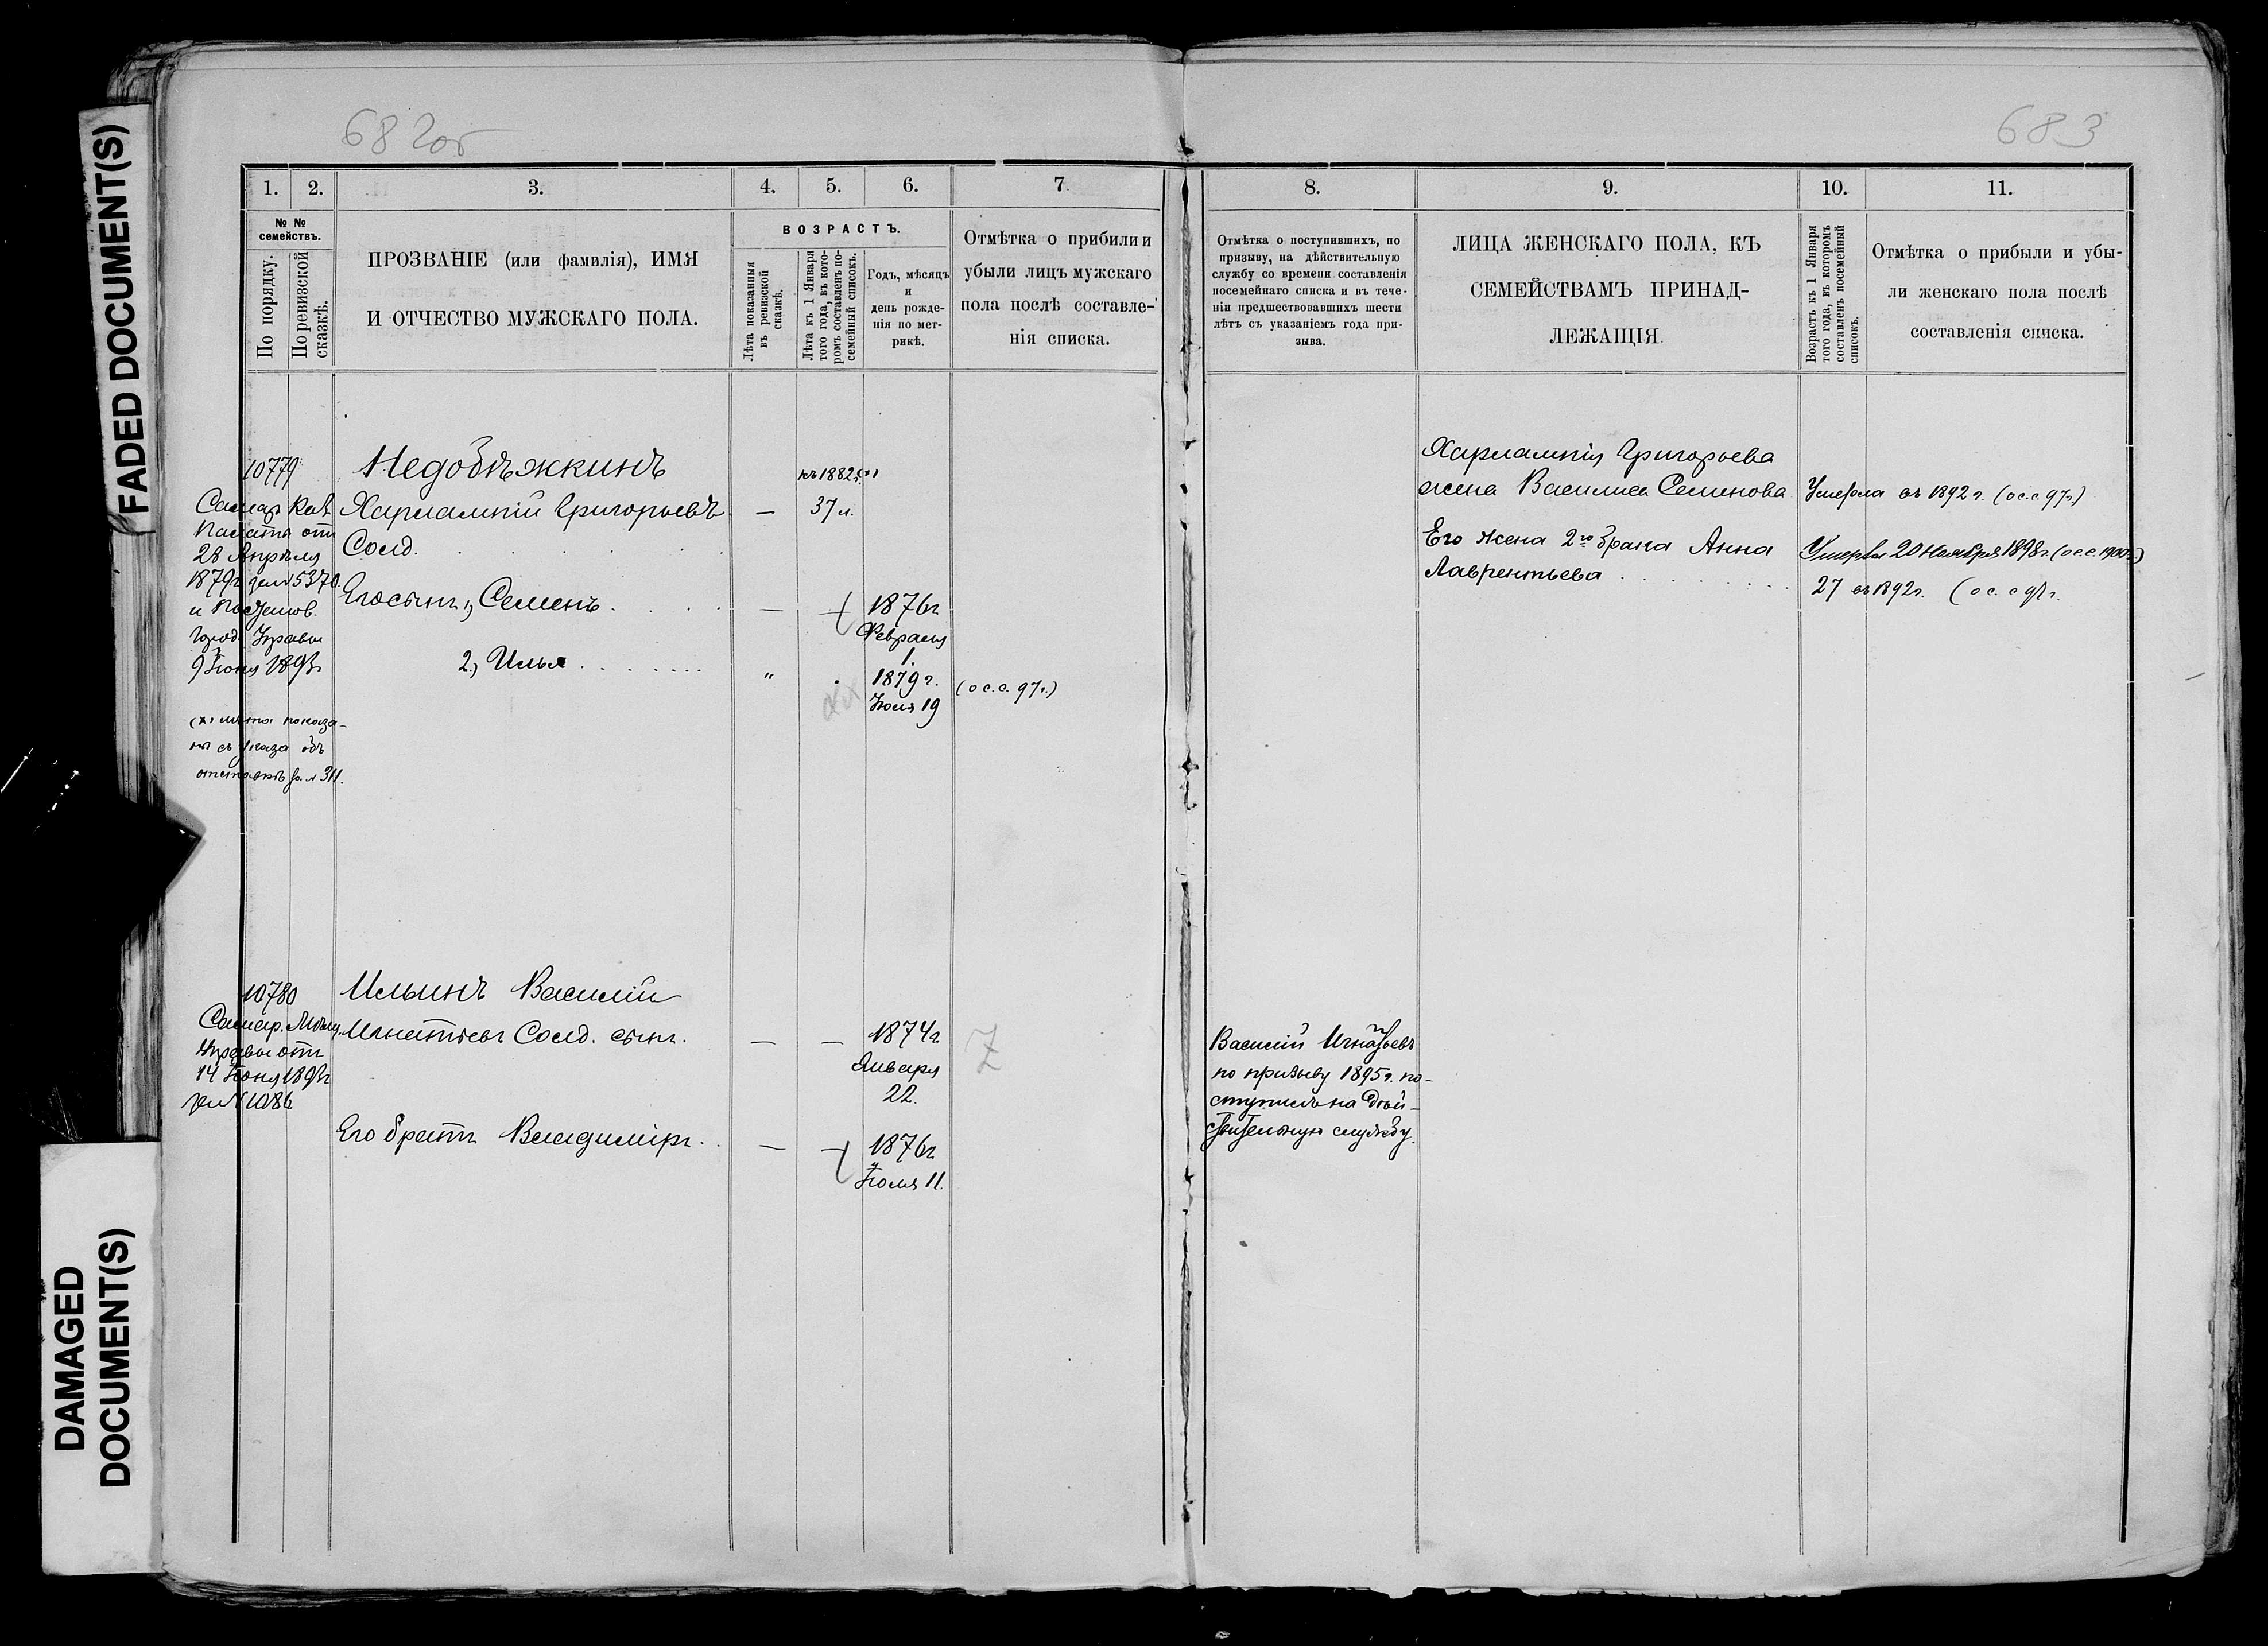 FADED DOCUMENT(S)
DAMAGED
DOCUMENT(S)
682об
683
1. 2. 3. 4. 5. 6. 7
№ №
семействъ.
По порядку.
По ревизской
сказкѣ.
ПРОЗВАНІЕ (или фамилія), ИМЯ
И ОТЧЕСТВО МУЖСКАГО ПОЛА.
ВОЗРАСТЪ.
Лѣта показанныя
въ ревизской
сказкѣ.
Лѣта къ 1 Января
того года, въ кото-
ромъ составленъ по-
семейный списокъ.
Годъ, мѣсяцъ
и
день рожде-
нія по мет-
рикѣ.
Отмѣтка о прибыли и
убыли лицъ мужскаго
пола послѣ составле-
нія списка.
8. 9. 10. 11.
Отмѣтка о поступившихъ, по
призыву, на дѣйствительную
службу со времени составленія
посемейнаго списка и въ тече-
ніи предшествовавшихъ шести
лѣтъ съ указаніемъ года при-
зыва.
ЛИЦА ЖЕНСКАГО ПОЛА, КЪ
СЕМЕЙСТВАМЪ ПРИНАД-
ЛЕЖАЩІЯ.
Возрастъ къ 1 Января
того года, въ которомъ
составленъ посемейный
списокъ.
Отмѣтка о прибыли и убы-
ли женскаго пола послѣ
составленія списка.
10779
Самар. Каз.
Палата отъ
28 Апрѣля
1879г за № 5370
и
Город. Управы
9 Іюня 189
(х) лѣта показа-
ны съ указа объ
отставкѣ
Недобѣжкинъ
Харлампій Григорьевъ
Солд.
Его сынъ 1, Семенъ
2, Илья
къ 1882г.
37 л.
1876г
Февраля
1.
1879 г.
Іюля 19
(о с. с. 97г.)
Харлампія Григорьева
жена Василиса Семенова
Умерла въ 1892 г. (о с. с 97г)
Его жена 2го брака Анна
Лаврентьева
Умерла 20 Ноября 1898г. (о с. с. 1900г.)
27 въ 1892г. (о с. с 97г.
10780
Самар. Мѣщ.
Управы отъ
14 Іюня 189
за № 1086
Ильинъ Василій
Игнатьевъ Солд. сынъ.
1874г
Января
22.
Его братъ Владиміръ
1876г
Іюля 11.
Василій Игнатьевъ
по призыву 1895г. по-
ступилъ на дѣй-
ствительную службу.